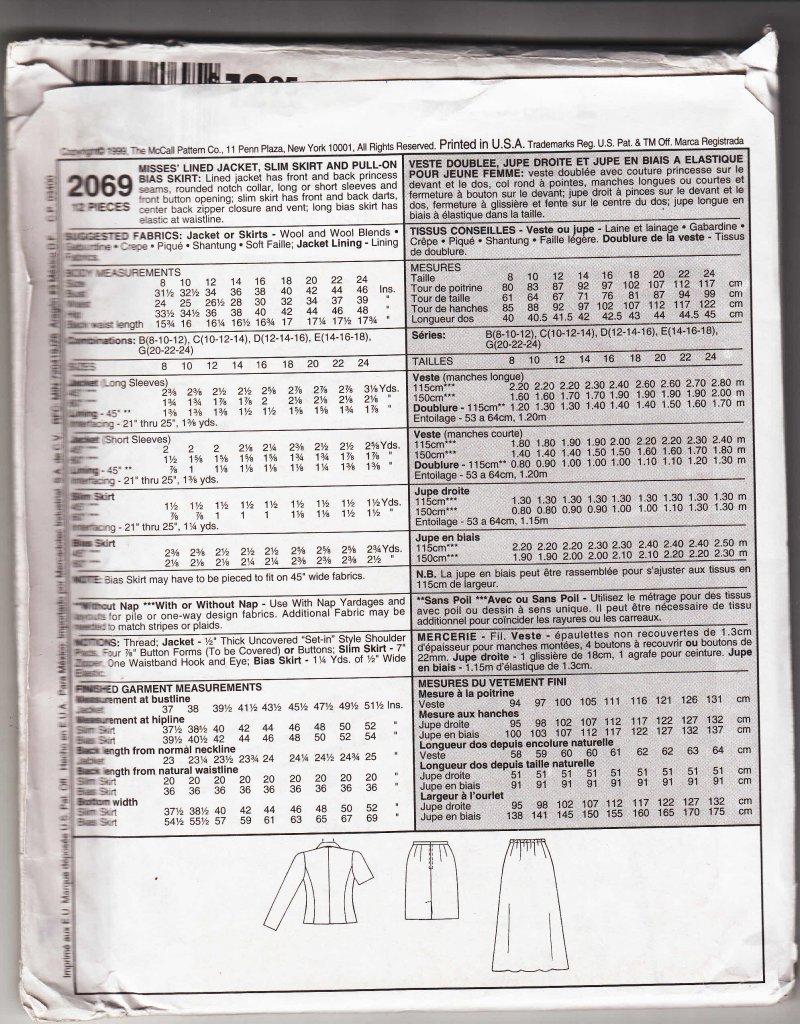 Copyright© 1999, The McCall Pattern Co., 11 Penn Plaza, New York 10001, All Rights Reserved. Printed in U.S.A. Trademarks Reg. U.S. Pat. & TM Off. Marca Registrada
2069
12 PIECES
MISSES' LINED JACKET, SLIM SKIRT AND PULL-ON
BIAS SKIRT: Lined jacket has front and back princess
seams, rounded notch collar, long or short sleeves and
front button opening; slim skirt has front and back darts,
center back zipper closure and vent; long bias skirt has
elastic at waistline.
SUGGESTED FABRICS: Jacket or Skirts - Wool and Wool Blends •
Gaburdine • Crepe • Piqué • Shantung • Soft Faille; Jacket Lining - Lining
Fabrics.
BODY MEASUREMENTS
Size 8 10 12 14 16 18 20 22 24
Bust 31½ 32½ 34 36 38 40 42 44 46 Ins.
Waist 24 25 26½ 28 30 32 34 37 39 "
Hip 33½ 34½ 36 38 40 42 44 46 48 "
Back waist length 15¾ 16 16¼ 16½ 16¾ 17 17¼ 17½ 17¾ "
Combinations: B(8-10-12), C(10-12-14), D(12-14-16), E(14-16-18),
G(20-22-24)
SIZES 8 10 12 14 16 18 20 22 24
Jacket (Long Sleeves)
45" *** 2⅜ 2⅜ 2½ 2½ 2⅝ 2⅞ 2⅞ 2⅞ 3⅛ Yds.
60" *** 1¾ 1¾ 1⅞ 1⅞ 2 2⅛ 2⅛ 2⅛ 2⅛ "
Lining - 45" ** 1⅜ 1⅜ 1⅜ 1½ 1½ 1⅝ 1⅝ 1¾ 1⅞ "
Interfacing - 21" thru 25", 1⅜ yds.
Jacket (Short Sleeves)
45" *** 2 2 2 2⅛ 2¼ 2⅜ 2½ 2½ 2⅝ Yds.
60" *** 1½ 1⅝ 1⅝ 1⅝ 1⅝ 1¾ 1¾ 1⅞ 1⅞ "
Lining - 45" ** ⅞ 1 1⅛ 1⅛ 1⅛ 1⅛ 1¼ 1⅜ 1⅜ "
Interfacing - 21" thru 25", 1⅜ yds.
Slim Skirt
45" *** 1½ 1½ 1½ 1½ 1½ 1½ 1½ 1½ 1½ Yds.
60" *** ⅞ ⅞ 1 1 1 1⅛ 1⅛ 1½ 1½ "
Interfacing - 21" thru 25", 1¼ yds.
Bias Skirt
45" *** 2⅜ 2⅜ 2½ 2½ 2½ 2⅝ 2⅝ 2⅝ 2¾ Yds.
60" *** 2⅛ 2⅛ 2⅛ 2¼ 2¼ 2⅜ 2⅜ 2⅜ 2½ "
NOTE: Bias Skirt may have to be pieced to fit on 45" wide fabrics.
**Without Nap ***With or Without Nap - Use With Nap Yardages and
layouts for pile or one-way design fabrics. Additional Fabric may be
needed to match stripes or plaids.
NOTIONS: Thread; Jacket - ½" Thick Uncovered "Set-in" Style Shoulder
Pads, Four ⅞" Button Forms (To be Covered) or Buttons; Slim Skirt - 7"
Zipper, One Waistband Hook and Eye; Bias Skirt - 1¼ Yds. of ½" Wide
Elastic.
FINISHED GARMENT MEASUREMENTS
Measurement at bustline
Jacket 37 38 39½ 41½ 43½ 45½ 47½ 49½ 51½ Ins.
Measurement at hipline
Slim Skirt 37½ 38½ 40 42 44 46 48 50 52 "
Bias Skirt 39½ 40½ 42 44 46 48 50 52 54 "
Back length from normal neckline
Jacket 23 23¼ 23½ 23¾ 24 24¼ 24½ 24¾ 25 "
Back length from natural waistline
Slim Skirt 20 20 20 20 20 20 20 20 20 "
Bias Skirt 36 36 36 36 36 36 36 36 36 "
Bottom width
Slim Skirt 37½ 38½ 40 42 44 46 48 50 52 "
Bias Skirt 54½ 55½ 57 59 61 63 65 67 69 "
VESTE DOUBLEE, JUPE DROITE ET JUPE EN BIAIS A ELASTIQUE
POUR JEUNE FEMME: veste doublée avec couture princesse sur le
devant et le dos, col rond à pointes, manches longues ou courtes et
fermeture à bouton sur le devant; jupe droit à pinces sur le devant et le
dos, fermeture à glissière et fente sur le centre du dos; jupe longue en
biais à élastique dans la taille.
TISSUS CONSEILLES - Veste ou jupe - Laine et lainage • Gabardine •
Crêpe • Piqué • Shantung • Faille légère. Doublure de la veste - Tissus
de doublure.
MESURES
Taille 8 10 12 14 16 18 20 22 24
Tour de poitrine 80 83 87 92 97 102 107 112 117 cm
Tour de taille 61 64 67 71 76 81 87 94 99 cm
Tour de hanches 85 88 92 97 102 107 112 117 122 cm
Longueur dos 40 40.5 41.5 42 42.5 43 44 44.5 45 cm
Séries: B(8-10-12), C(10-12-14), D(12-14-16), E(14-16-18),
G(20-22-24)
TAILLES 8 10 12 14 16 18 20 22 24
Veste (manches longue)
115cm*** 2.20 2.20 2.20 2.30 2.40 2.60 2.60 2.70 2.80 m
150cm*** 1.60 1.60 1.70 1.70 1.90 1.90 1.90 1.90 2.00 m
Doublure - 115cm** 1.20 1.30 1.30 1.40 1.40 1.40 1.50 1.60 1.70 m
Entoilage - 53 a 64cm, 1.20m
Veste (manches courte)
115cm*** 1.80 1.80 1.90 1.90 2.00 2.20 2.20 2.30 2.40 m
150cm*** 1.40 1.40 1.40 1.50 1.50 1.60 1.60 1.70 1.80 m
Doublure - 115cm** 0.80 0.90 1.00 1.00 1.00 1.10 1.10 1.20 1.30 m
Entoilage - 53 a 64cm, 1.20m
Jupe droite
115cm*** 1.30 1.30 1.30 1.30 1.30 1.30 1.30 1.30 1.30 m
150cm*** 0.80 0.80 0.90 0.90 1.00 1.00 1.10 1.30 1.30 m
Entoilage - 53 a 64cm, 1.15m
Jupe en biais
115cm*** 2.20 2.20 2.20 2.30 2.30 2.40 2.40 2.40 2.50 m
150cm*** 1.90 1.90 2.00 2.00 2.10 2.10 2.20 2.20 2.30 m
N.B. La jupe en biais peut être rassemblée pour s'ajuster aux tissus en
115cm de largeur.
**Sans Poil ***Avec ou Sans Poil - Utilisez le métrage pour des tissus
avec poil ou dessin à sens unique. Il peut être nécessaire de tissu
additionnel pour coïncider les rayures ou les carreaux.
MERCERIE - Fil. Veste - épaulettes non recouvertes de 1.3cm
d'épaisseur pour manches montées, 4 boutons à recouvrir ou boutons de
22mm. Jupe droite - 1 glissière de 18cm, 1 agrafe pour ceinture. Jupe
en biais - 1.15m d'élastique de 1.3cm.
MESURES DU VETEMENT FINI
Mesure à la poitrine
Veste 94 97 100 105 111 116 121 126 131 cm
Mesure aux hanches
Jupe droite 95 98 102 107 112 117 122 127 132 cm
Jupe en biais 100 103 107 112 117 122 127 132 137 cm
Longueur dos depuis encolure naturelle
Veste 58 59 60 60 61 62 62 63 64 cm
Longueur dos depuis taille naturelle
Jupe droite 51 51 51 51 51 51 51 51 51 cm
Jupe en biais 91 91 91 91 91 91 91 91 91 cm
Largeur à l'ourlet
Jupe droite 95 98 102 107 112 117 122 127 132 cm
Jupe en biais 138 141 145 150 155 160 165 170 175 cm